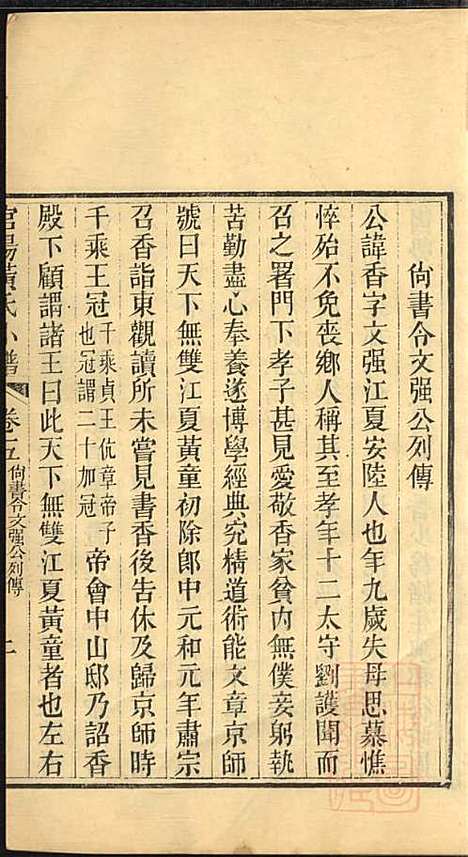 尙書令文强公列傳
公諱香字文强江夏安陸人也年九歲失母思慕憔
悴殆不免喪鄉人稱其至孝年十二太守劉護聞而
召之署門下孝子甚見愛敬香家貧內無僕妾躬執
苦勤盡心奉養遂博學經典究精道術能文章京師
號曰天下無雙江夏黃童初除郎中元和元年肅宗
召香詣東觀讀所未嘗見書香後吿休及歸京師時
千乘王冠千乘貞王伉章帝子也冠謂二十加冠帝會中山邸乃詔香
殿下顧謂諸王曰此天下無雙江夏黃童者也左右
黃氏小譜 卷五 尙書令文强公列傳